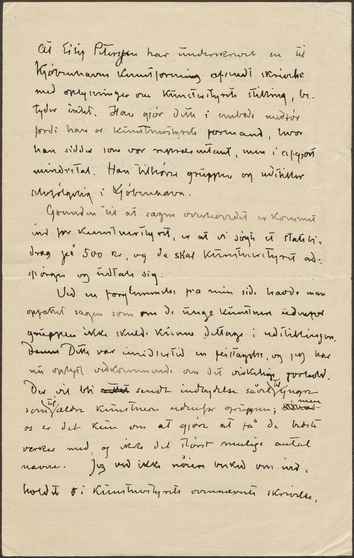 At Eilif Peterssen har underskrevet en til
Kjøbenhavns Kunstforening afsendt skrivelse
med oplysninger om Kunstnerstyrets stilling, be-
tyder intet. Han gjør dette i embeds medfør
fordi han er Kunstnerstyrets formand, hvor
han sidder som vor repræsentant, men i afgjort
mindretal. Han tilhører gruppen og udstiller
selvfølgelig i Kjøbenhavn.
Grunden til at sagen overhovedet er kommet
ind for Kunstnerstyret, er at vi søgte et statsbi-
drag på 500 kr, og da skal Kunstnerstyret ad-
spørges og udtale sig.
Ved en forglemmelse fra min side havde man
opfattet sagen som om de unge kunstnere udenfor
gruppen ikke skulde kunne deltage i udstillingen.
Dette var imidlertid en feiltagelse, og jeg har
nu oplyst vedkommende om det virkelige forhold.
Der vil bli sendt indbydelse såvel til yngre
som til ældre kunstnere udenfor gruppen; men
os er det kun om at gjøre at få de bedste
værker med, og ikke det størst mulige antal
navne. Jeg ved ikke nøiere besked om ind-
holdet i Kunstnerstyrets ovennævnte skrivelse,